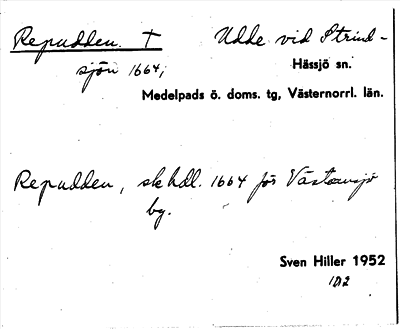 Repudden. † Udde vid Strind-
sjön 1664, Hässjö sn.
Medelpads ö. doms. tg, Västernorrl. län.
Repudden, sk hdl. 1664 för Västansjö
by.
Sven Hiller 1952